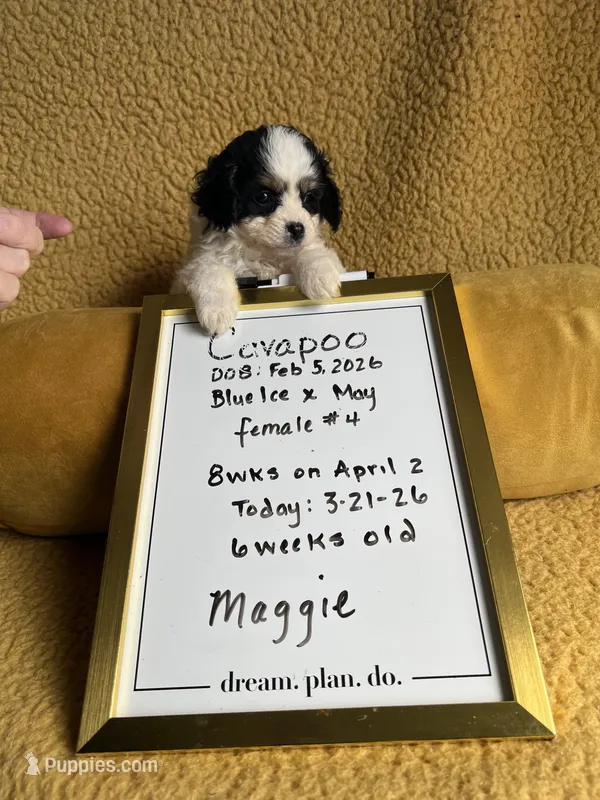 Cavapoo
DOB: Feb 5, 2026
Blue Ice x May
female #4
8wks on April 2
Today: 3-21-26
6 weeks old
Maggie
dream. plan. do.
Puppies.com